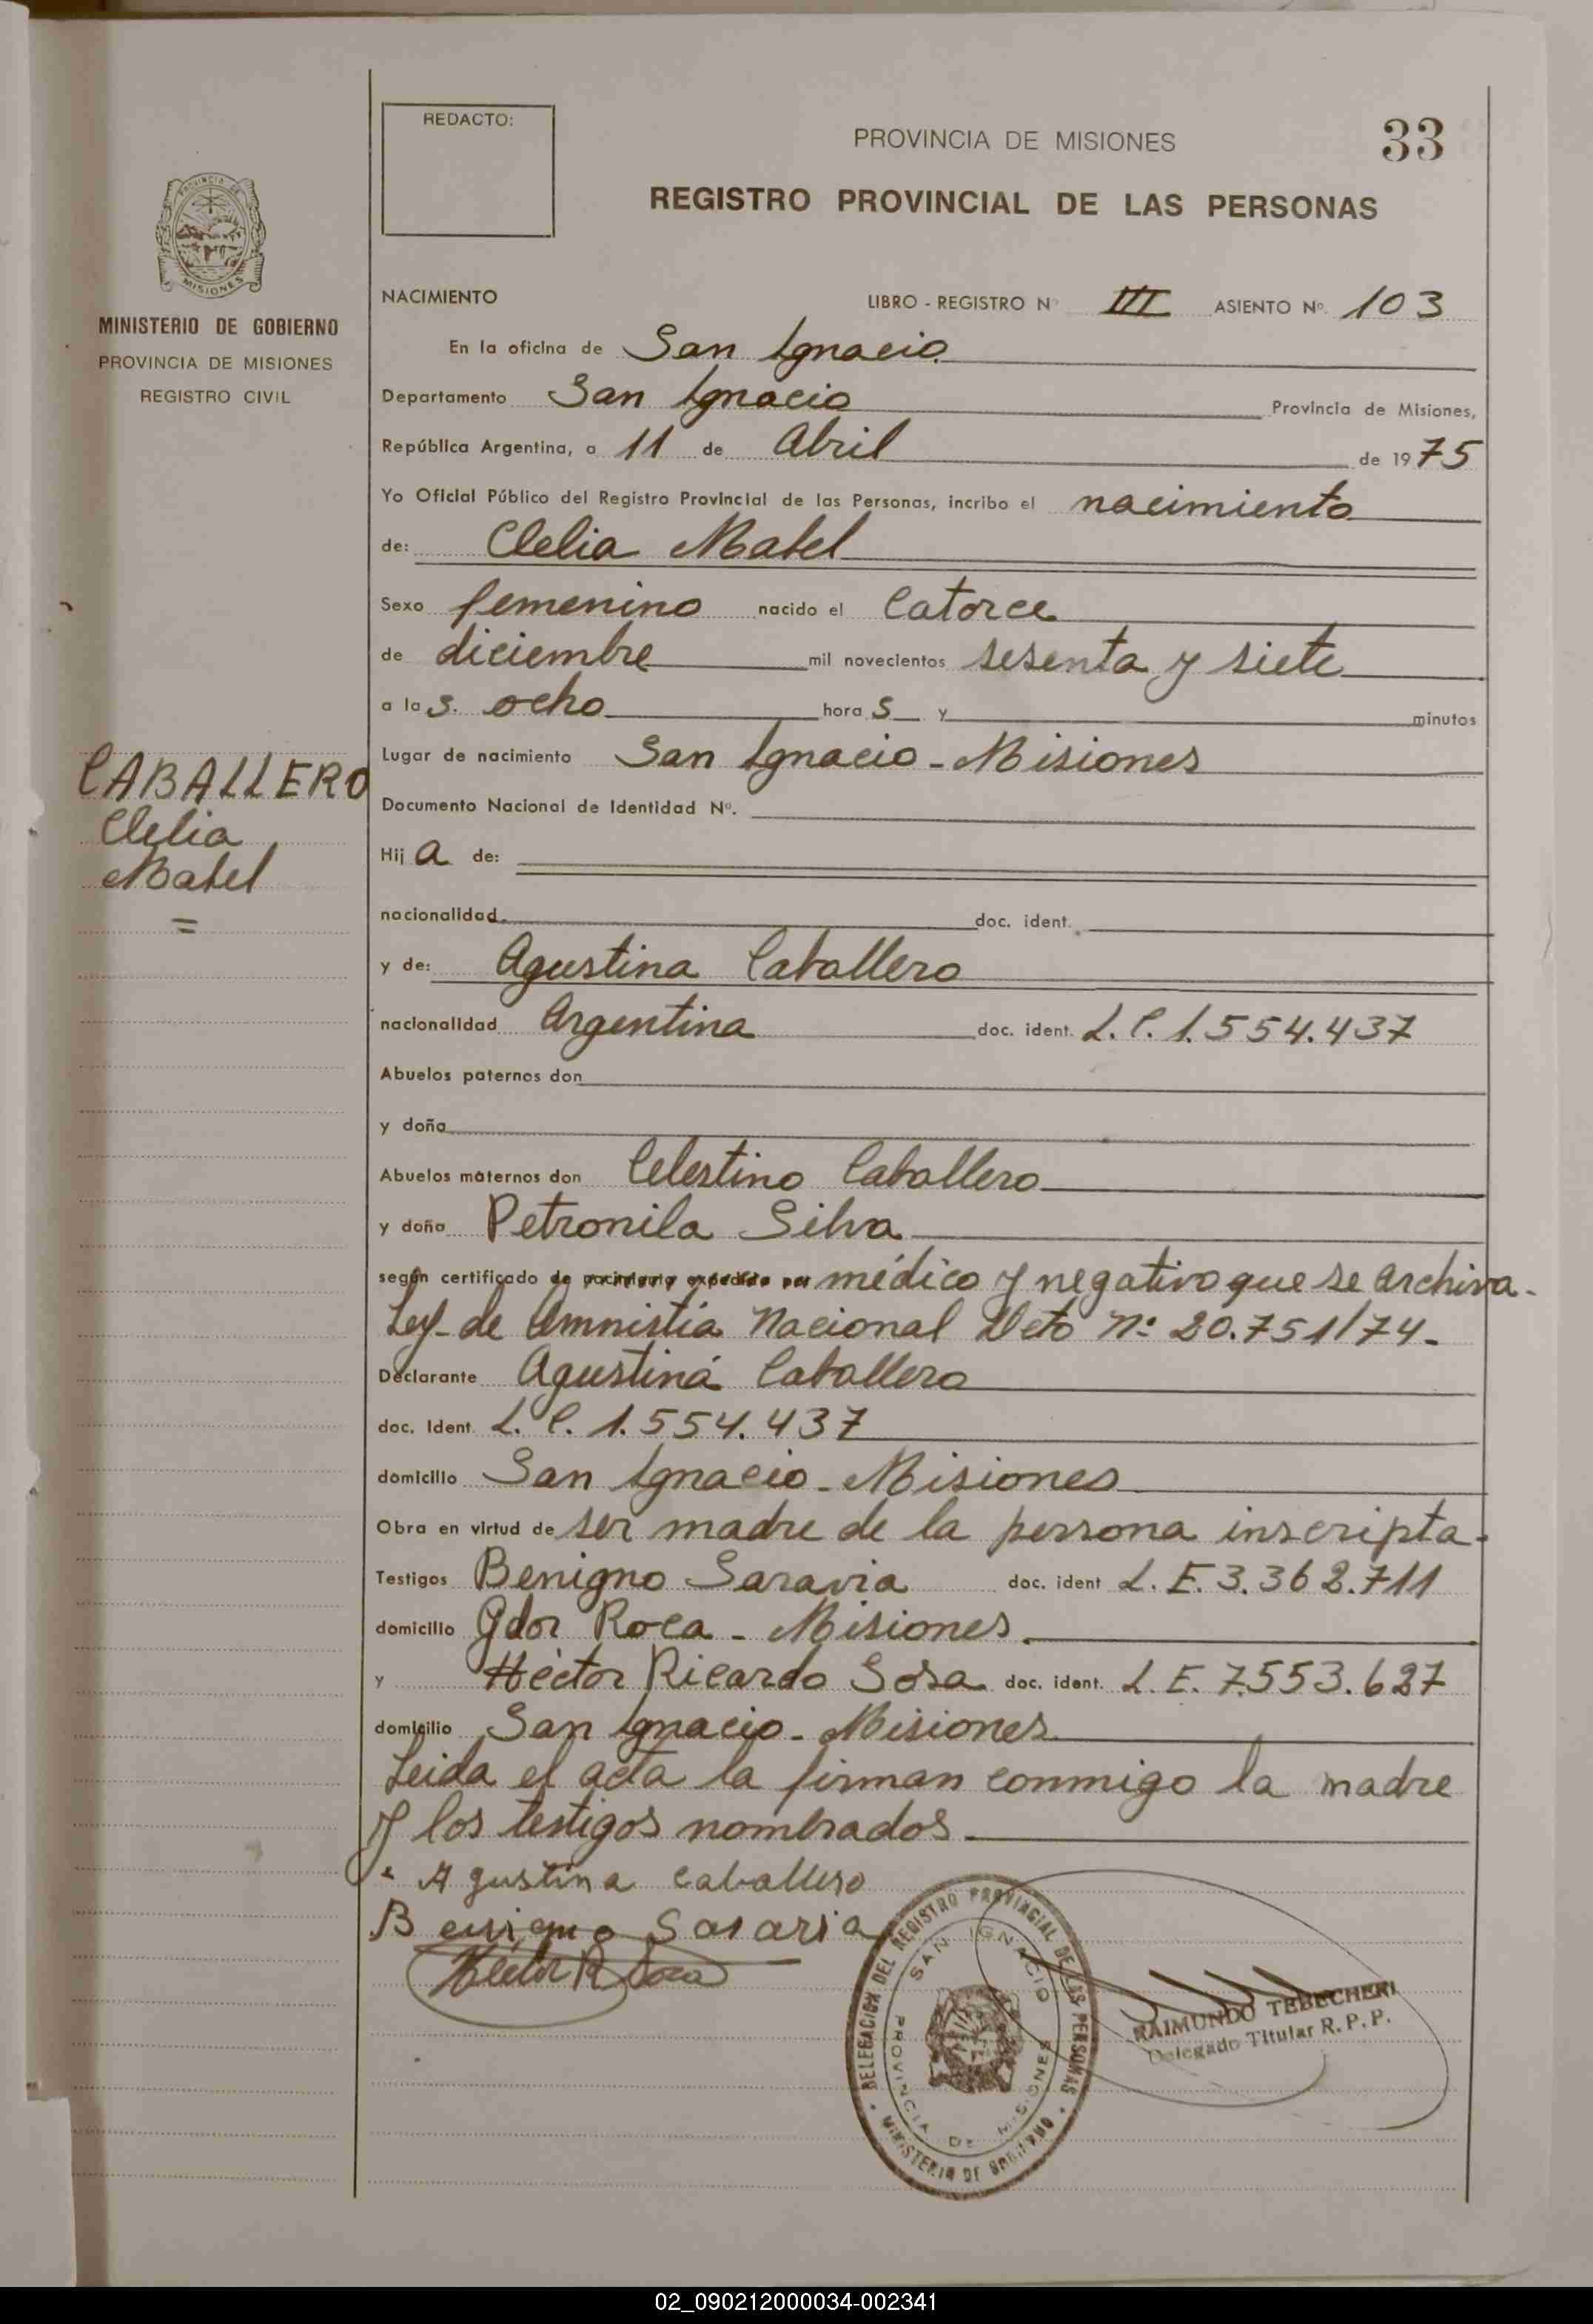 REDACTO:
PROVINCIA DE MISIONES
33
REGISTRO PROVINCIAL DE LAS PERSONAS
PROVINCIA DE
MISIONES
MINISTERIO DE GOBIERNO
PROVINCIA DE MISIONES
REGISTRO CIVIL
NACIMIENTO LIBRO - REGISTRO Nº III ASIENTO Nº. 103
En la oficina de San Ignacio
Departamento San Ignacio Provincia de Misiones,
República Argentina, a 11 de Abril de 1975
Yo Oficial Público del Registro Provincial de las Personas, incribo el nacimiento
de: Clelia Mabel
Sexo femenino nacido el Catorce
de diciembre mil novecientos sesenta y siete
a las. ocho horas y minutos
Lugar de nacimiento San Ignacio - Misiones
CABALLERO
Clelia
Mabel
=
Documento Nacional de Identidad Nº.
Hija de:
nacionalidad doc. ident.
y de: Agustina Caballero
nacionalidad Argentina doc. ident. L.C. 1.554.437
Abuelos paternos don
y doña
Abuelos maternos don Celestino Caballero
y doña Petronila Silva
según certificado de nacimiento expedido por médico y negativo que se archiva.
Ley de Amnistía Nacional Dcto Nº 20.751/74.
Declarante Agustina Caballero
doc. Ident L.C. 1.554.437
domicilio San Ignacio - Misiones
Obra en virtud de ser madre de la persona inscripta.
Testigos Benigno Saravia doc. ident L.E. 3.362.711
domicilio Gdor Roca - Misiones
y Héctor Ricardo Sosa doc. ident. L.E. 7.553.627
domicilio San Ignacio - Misiones
Leida el acta la firman conmigo la madre
y los testigos nombrados
Agustina caballero
Benigno Sararia
Hector R Sosa
DELEGACION DEL REGISTRO PROVINCIAL DE LAS PERSONAS
SAN IGNACIO
PROVINCIA DE MISIONES
MINISTERIO DE GOBIERNO
RAIMUNDO TEBECHERI
Delegado Titular R. P. P.
02_090212000034-002341